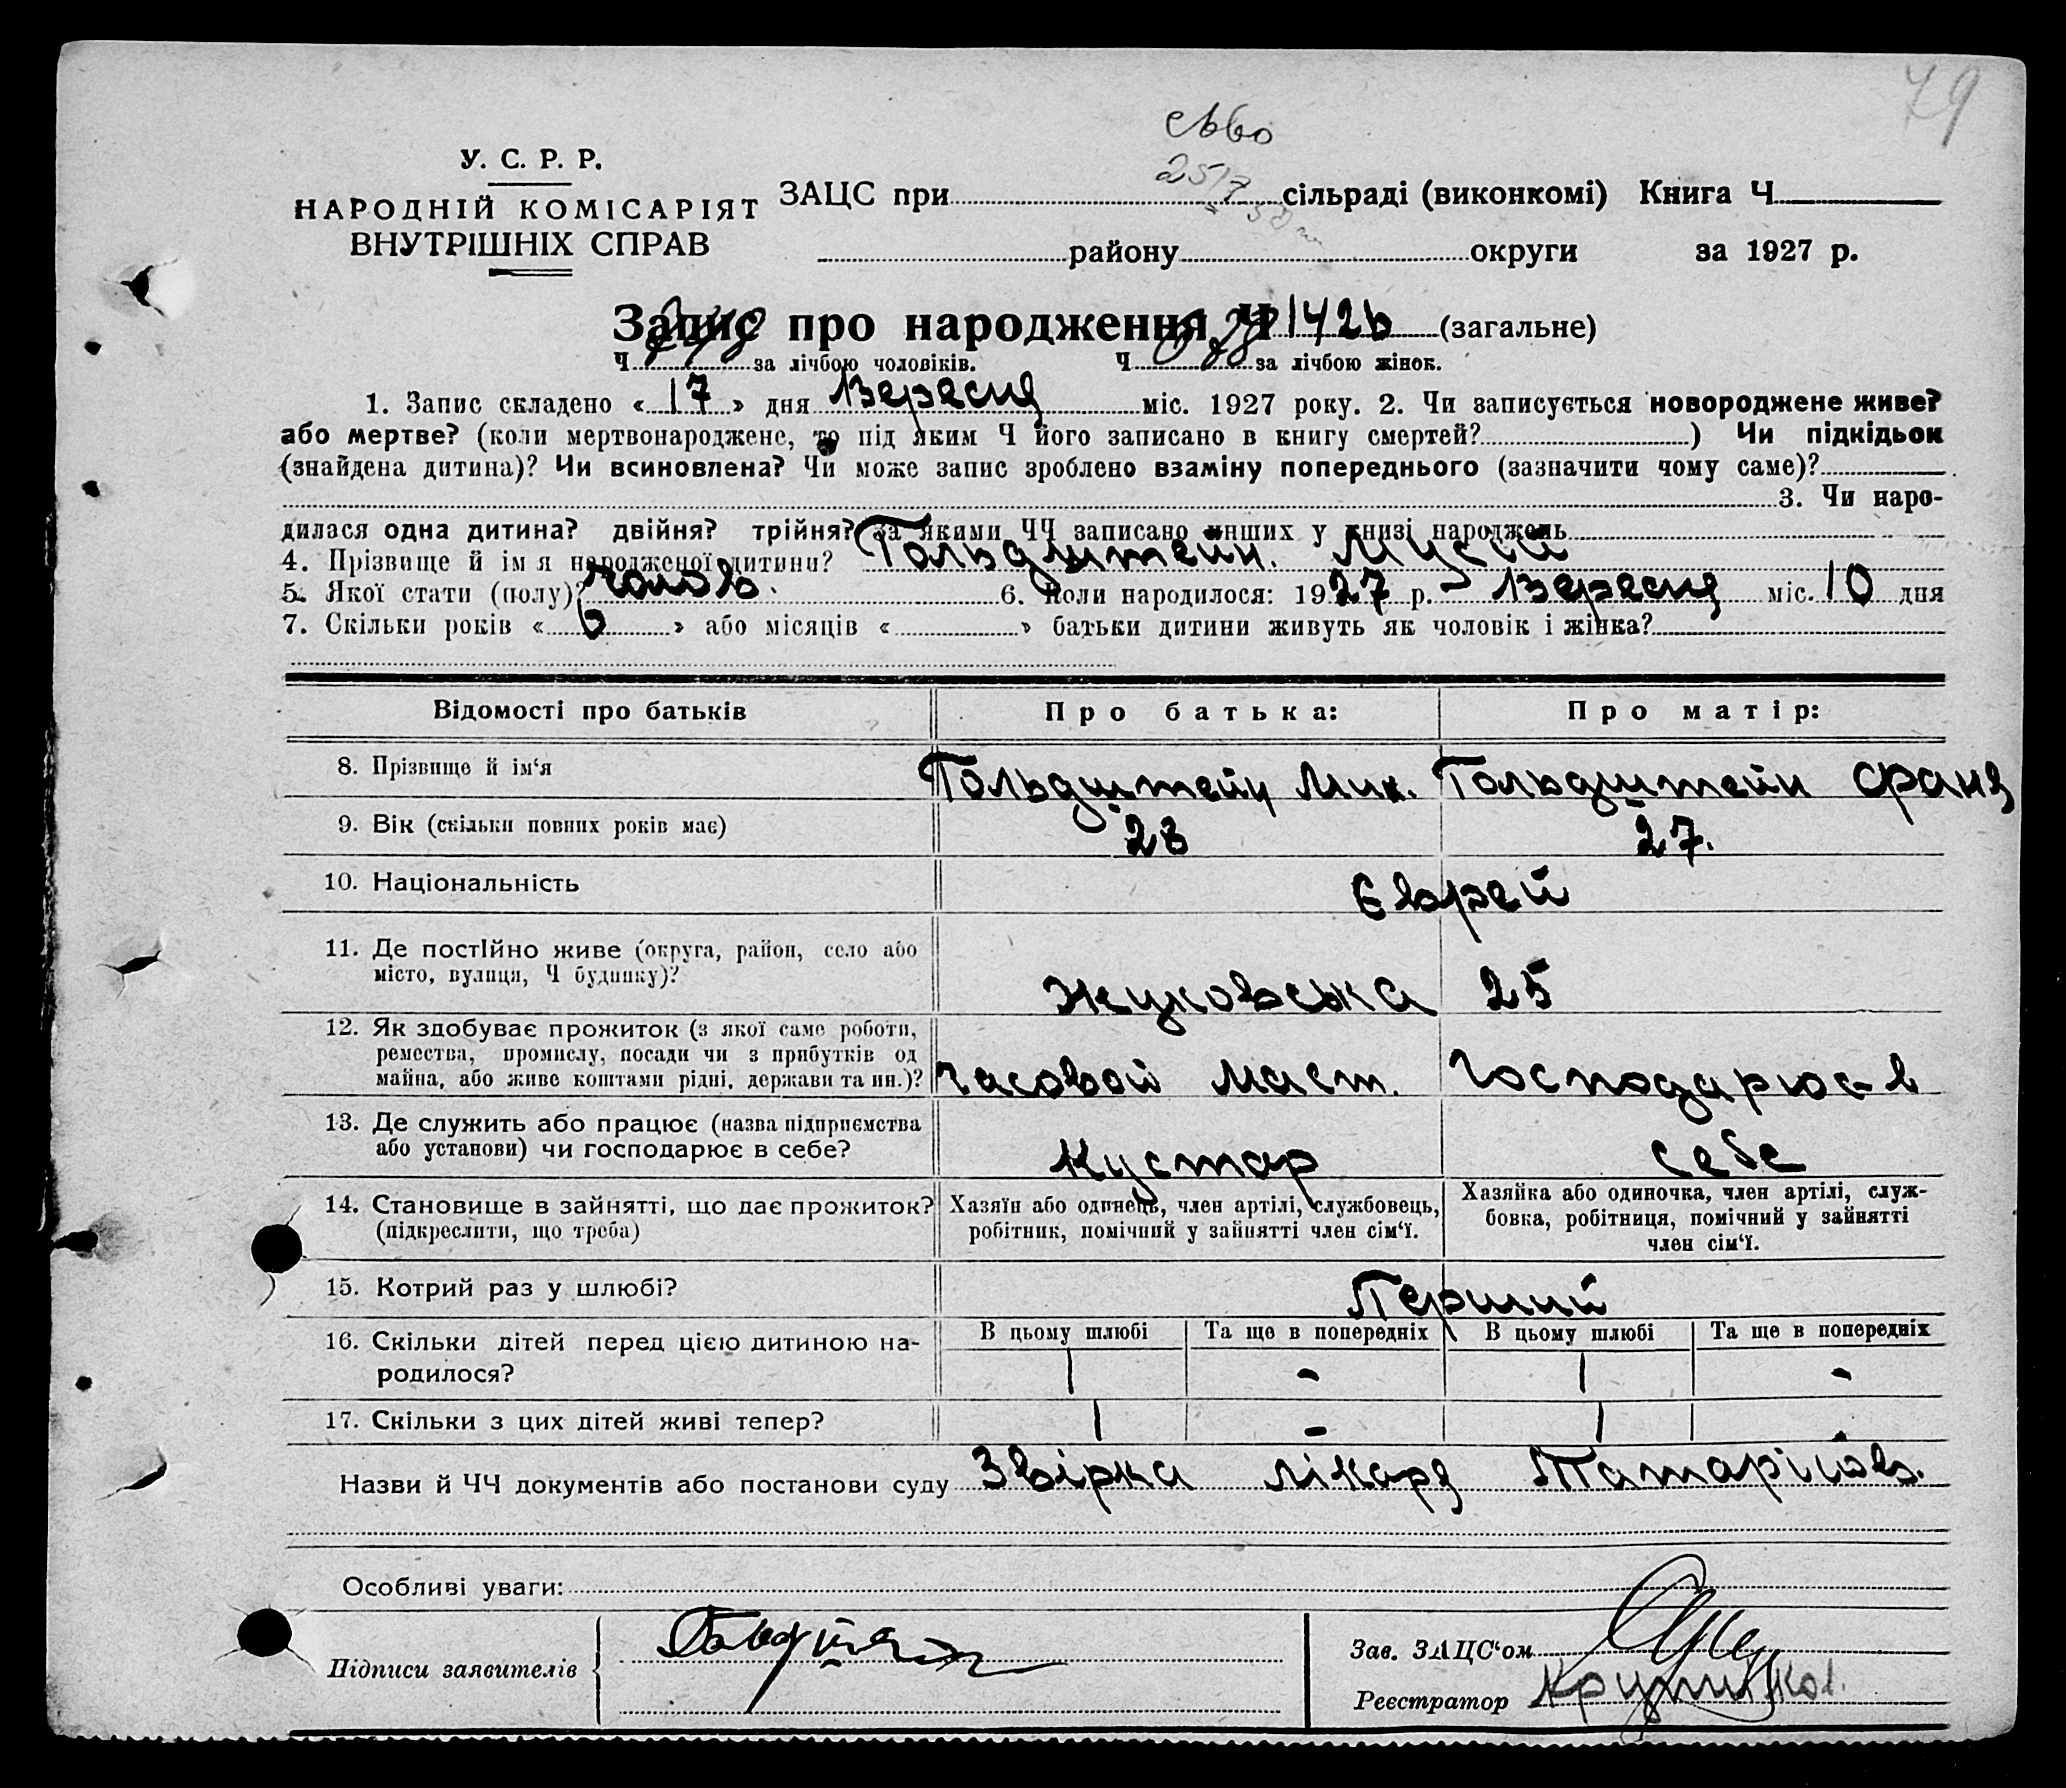 79
сьво
2517
У. С. Р. Р.
НАРОДНІЙ КОМІСАРІЯТ
ВНУТРІШНІХ СПРАВ
ЗАЦС при сільраді (виконкомі) Книга Ч
району округи за 1927 р.
Запис про народження Ч 1426 (загальне)
Ч за лічбою чоловіків. Ч 678 за лічбою жінок.
1. Запис складено « 17 » дня Вересня міс. 1927 року. 2. Чи записується новороджене живе?
або мертве? (коли мертвонароджене, то під яким Ч його записано в книгу смертей? ) Чи підкідьок
(знайдена дитина)? Чи всиновлена? Чи може запис зроблено взаміну попереднього (зазначити чому саме)?
3. Чи наро-
дилася одна дитина? двійня? трійня? За якими ЧЧ записано инших у книзі народжень
4. Прізвище й ім я народженої дитини? Гольдштейн. Мусій
5. Якої стати (полу)? чолов. 6. Коли народилося: 1927 р. Вересня міс. 10 дня
7. Скільки років « 6 » або місяців « » батьки дитини живуть як чоловік і жінка?
Відомості про батьків Про батька: Про матір:
8. Прізвище й ім‘я Гольдштейн Мих. Гольдштейн Фаня
9. Вік (скільки повних років має) 28 27.
10. Національність Єврей
11. Де постійно живе (округа, район, село або
місто, вулиця, Ч будинку)? Жуковська 25
12. Як здобуває прожиток (з якої саме роботи,
ремества, промислу, посади чи з прибутків од
майна, або живе коштами рідні, держави та ин.)? часовой маст. господарює в
13. Де служить або працює (назва підприємства
або установи) чи господарює в себе? Кустар себе
14. Становище в зайнятті, що дає прожиток?
(підкреслити, що треба)
Хазяїн або одинець, член артілі, службовець,
робітник, помічний у зайнятті член сім‘ї.
Хазяйка або одиночка, член артілі, служ-
бовка, робітниця, помічний у зайнятті
член сім‘ї.
15. Котрий раз у шлюбі? Перший
В цьому шлюбі Та ще в попередніх В цьому шлюбі Та ще в попередніх
16. Скільки дітей перед цією дитиною на-
родилося? 1 - 1 -
17. Скільки з цих дітей живі тепер? 1 - 1 -
Назви й ЧЧ документів або постанови суду Звірка лікаря
Особливі уваги:
Підписи заявителів
Зав. ЗАЦС‘ом
Реєстратор